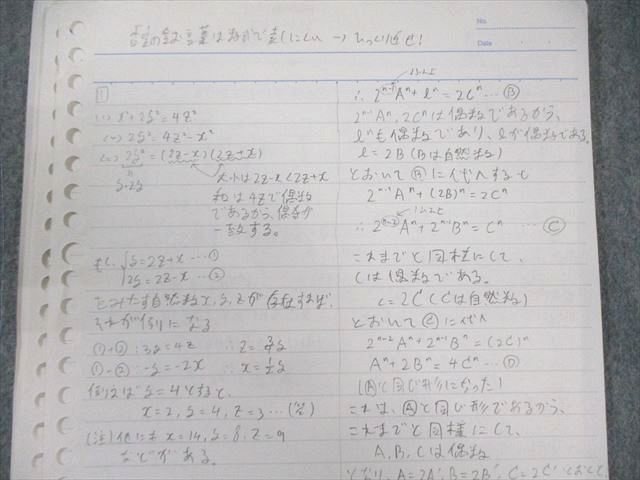 No.
Date
1
(1) x²+2y²=4z²
⇔ 2y²=4z²-x²
⇔ 2y²=(2z-x)(2z+x)
大小は2z-x<2z+x
和は4zで偶数
であるから、偶奇が
一致する。
もし { y=2z+x …①
2y=2z-x …②
をみたす自然数x,y,zが存在すれば、
それが例になる
①+②:3y=4z ∴z=3/4y
①-②:-y=-2x ∴x=1/2y
例えばy=4とすると、
x=2, y=4, z=3…(答)
(注)他にも x=14, y=8, z=9
などがある。
1以上
∴ 2ⁿ⁻¹Aⁿ+lⁿ=2Cⁿ…Ⓑ
2ⁿ⁻¹Aⁿ, 2Cⁿは偶数であるから、
lⁿも偶数であり、lが偶数である。
l=2B(Bは自然数)
とおいてⒷに代入すると
2ⁿ⁻¹Aⁿ+(2B)ⁿ=2Cⁿ
1以上
∴ 2ⁿ⁻²Aⁿ+2ⁿ⁻¹Bⁿ=Cⁿ …Ⓒ
これまでと同様にして、
Cは偶数である。
C=2C'(C'は自然数)
とおいてⒸに代入
2ⁿ⁻²Aⁿ+2ⁿ⁻¹Bⁿ=(2C)ⁿ
Aⁿ+2Bⁿ=4Cⁿ…Ⓓ
(Ⓐと同じ形になった)
これは、Ⓐと同じ形であるから、
これまでと同様にして、
A, B, Cは偶数
となり、A=2A', B=2B', C=2C'とおくと、